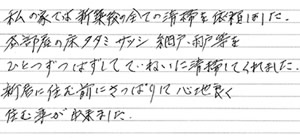 私の家では新築後の全ての清掃を依頼しました。
各部屋の床タタミサッシ網戸、雨戸等を
ひとつずつはずしてていねいに清掃してくれました。
新居に住む前にさっぱりして心地良く
住む事が出来ました。